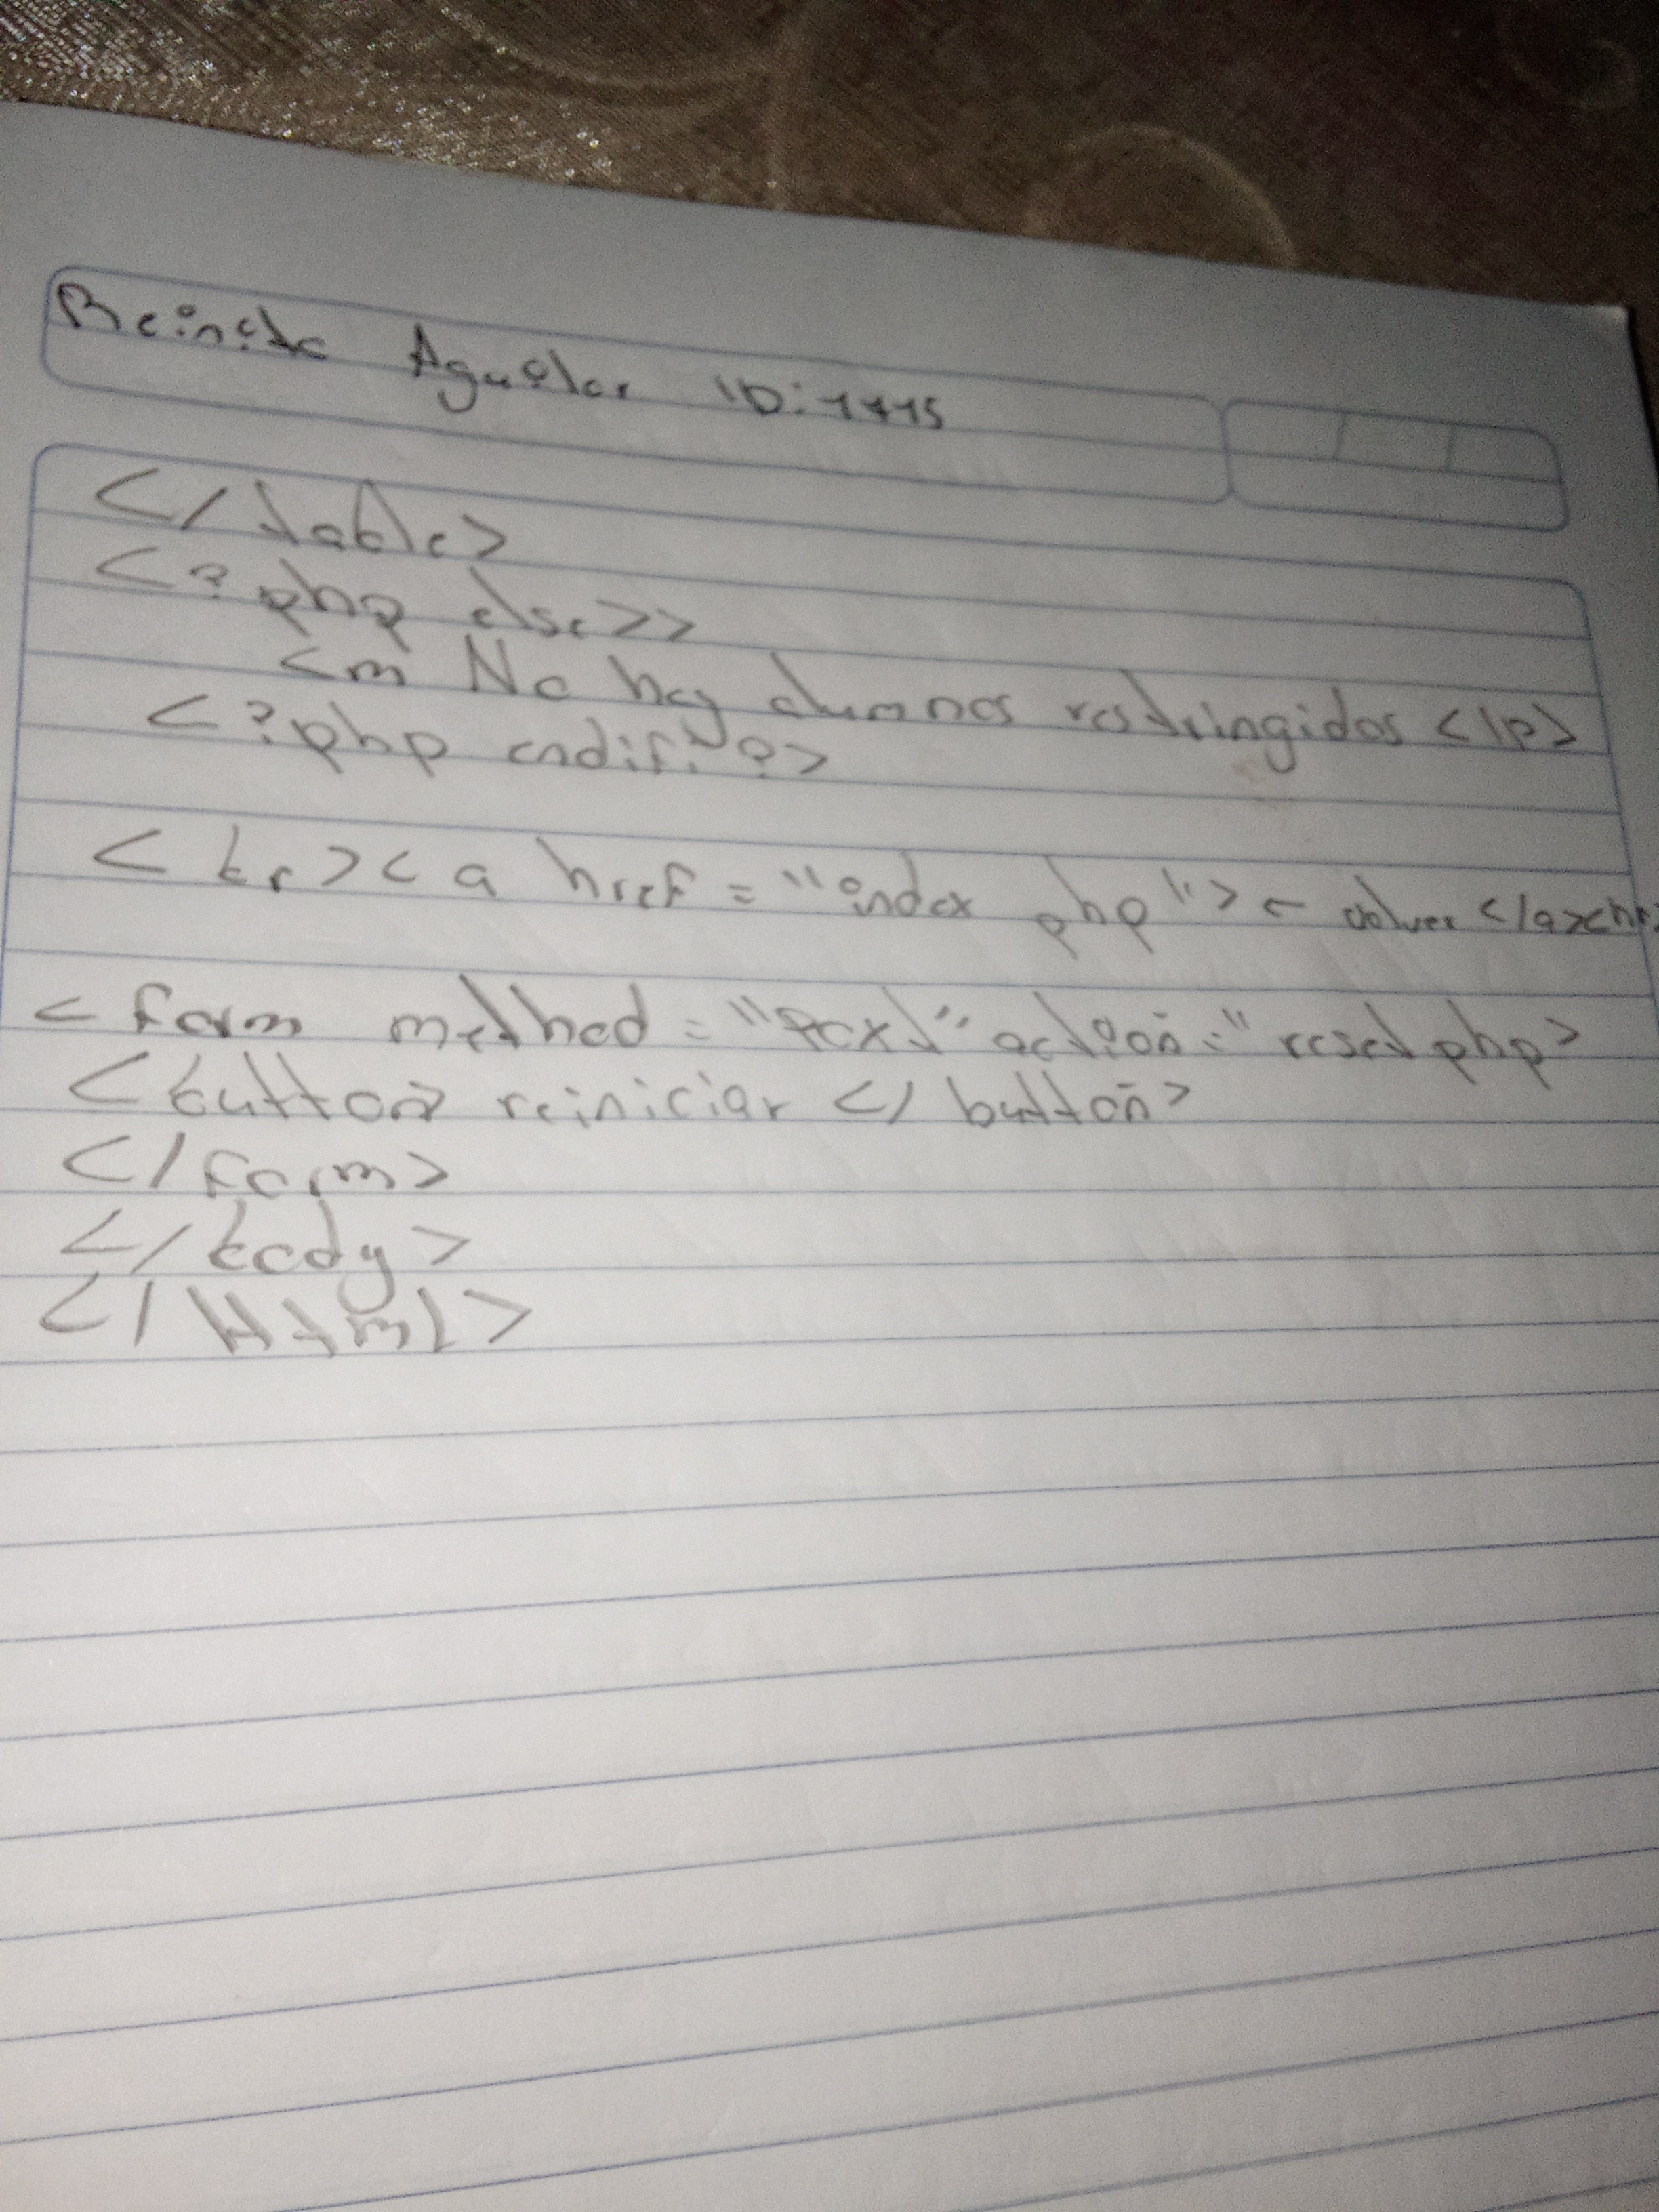 Benito Aguilar ID: 1775
</table>
<?php else>>
<m No hay alumnos restringidos </p>
<?php endif; ?>
<br>< a href = "index php"> ← volver </a><hr>
< form method = "Post" action = "reset php>
<button> reiniciar </ button>
</form>
</body>
</Html>